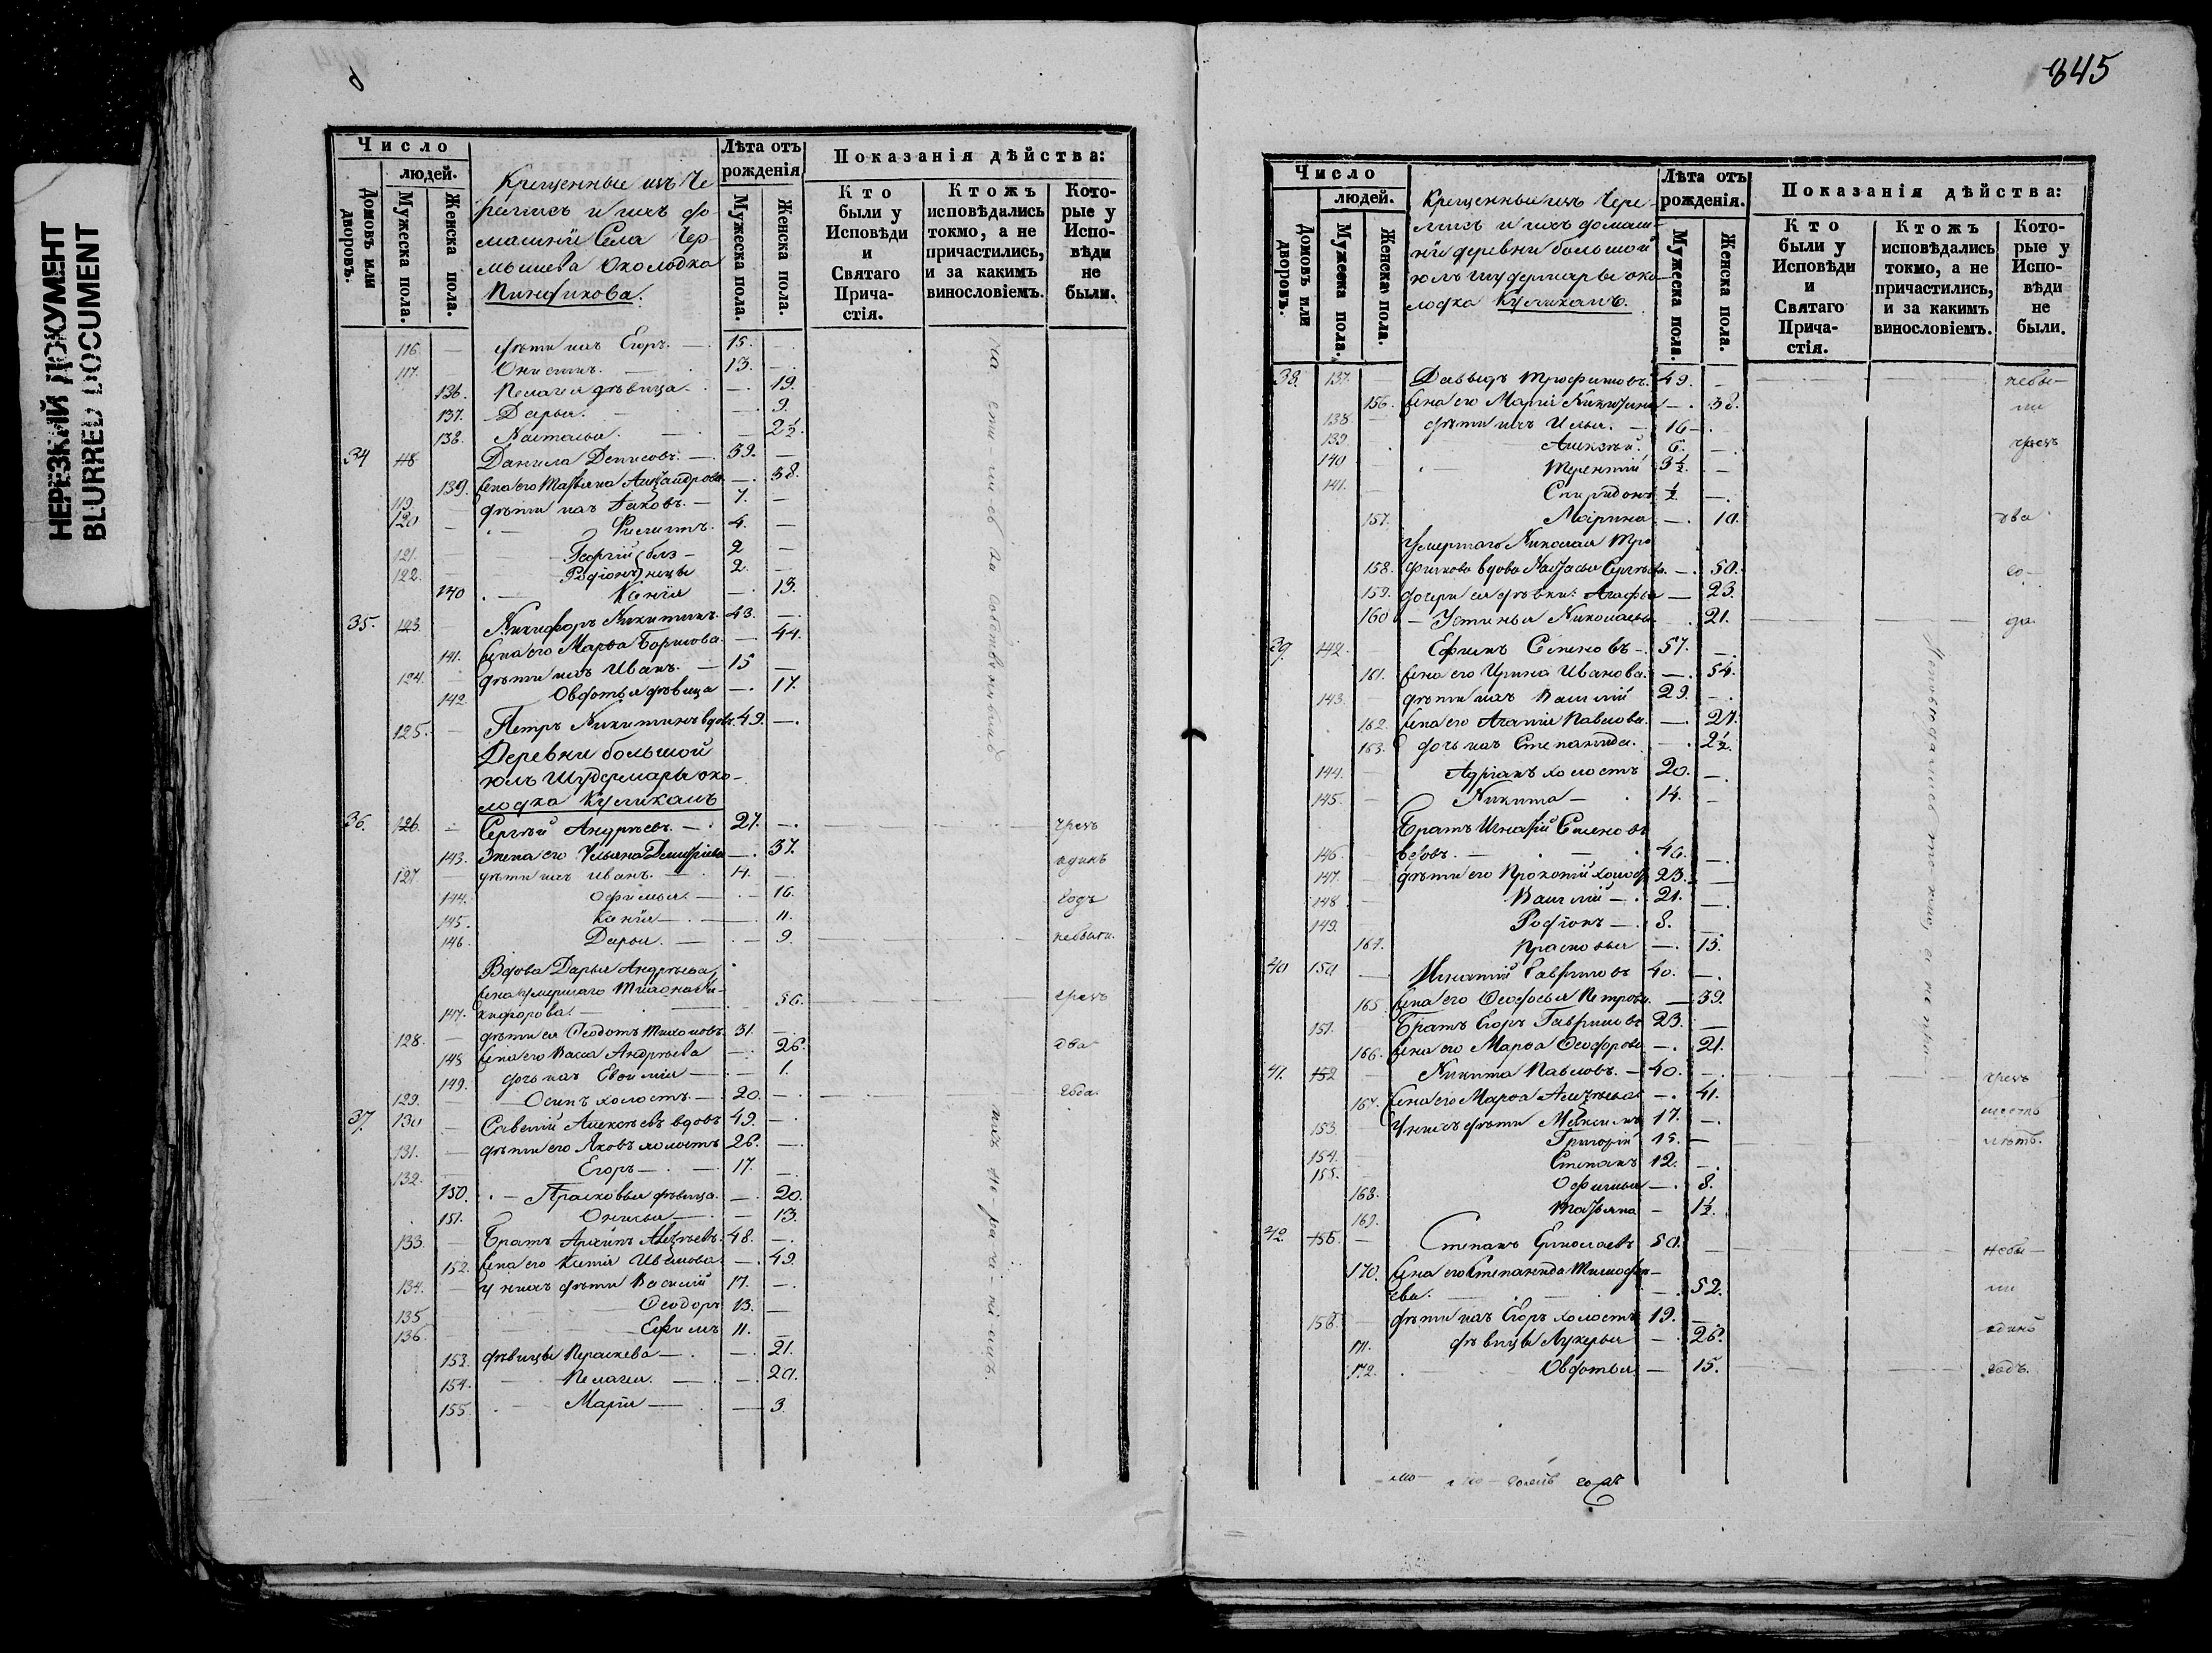 НЕРЕЗКИЙ ДОКУМЕНТ
BLURRED DOCUMENT
Число
людей.
Домовъ или дворовъ.
Мужеска пола.
Женска пола.
Крещенные изъ Че
ремисъ и ихъ до
машнiи Села Чер
мышева Околодка
Лѣта отъ рожденія
Мужеска пола.
Женска пола.
Показанія дѣйства:
Кто были у Исповѣди и Святаго Причастія.
Ктожъ исповѣдались токмо, а не причастились, и за какимъ винословіемъ.
Которые у Исповѣди не были.
116. — дѣти ихъ Егоръ. — 15. —
117. Онисимъ. 13. —
136. Пелагея дѣвица — 19.
137. Дарья. — 9.
138. Настасья. — 2½.
34 118 Данила Денисовъ. — 39. —
139. жена его Татьяна — 38.
119 дѣти ихъ Іаковъ. — 7. —
120 Филипъ. 4. —
121. Георгій близ- 2 —
122. Родіонъ нецы 2. —
140 Ксенія — 13.
35. 123. Никифоръ Никитинъ. 43. —
141. жена его Марѳа Борисова. — 44.
124. дѣти ихъ Иванъ. — 15 —
142 Овдотья дѣвица — 17.
125. — Петръ Никитинъ вдовъ. 49. —
Деревни большой
юль Шудермары око-
лодка Кусиканъ
36. 126. Сергѣй Андрѣевъ. — 27. — чрезъ
143. Жена его Ульяна — 37. одинъ
127. — дѣти ихъ Иванъ. — 14. —
144. Офимья. — 16. годъ
145. Ксенія — 11.
146. Дарья. — 9. небыли.
Вдова Дарья Андрѣева,
жена умершаго Тихона Ни-
147. кифорова. — 56. чрезъ
128. — дѣти ея Ѳеодотъ Тихоновъ. 31. —
148 жена его Васса Андрѣева — 26. два
149. дочь ихъ — 1.
129. — Осипъ холостъ. — 20. — года.
37. 130 Савелій Алексѣевъ вдовъ 49. —
131. — дѣти его Яковъ холостъ 26. —
132. Егоръ — 17. —
150. Прасковья дѣвица. — 20.
151. Онисья — 13.
133. — Братъ Архипъ 48. —
152. жена его Иванова. — 49.
134. у нихъ дѣти Василій 17. —
135 Ѳеодоръ 13. —
136. Ефимъ 11. —
153. дѣвицы Параскева — 21.
154. Пелагея. — 20.
155. Марія — 3.
845
Число
людей.
Домовъ или дворовъ.
Мужеска пола.
Женска пола.
Крещенные изъ Чере-
мисъ и ихъ домаш-
нiи деревни большой
юль шудермары око-
лодка Кусиканъ.
Лѣта отъ рожденія.
Мужеска пола.
Женска пола.
Показанія дѣйства:
Кто были у Исповѣди и Святаго Причастія.
Ктожъ исповѣдались токмо, а не причастились, и за какимъ винословіемъ.
Которые у Исповѣди не были.
38. 137. — Давыдъ Трофимовъ. 49. — небы-
156. жена его Марія Никитина — 38. ли
138. дѣти ихъ Илья. — 16 —
139. Алексѣй. 6. — чрезъ
140 Терентій 3½. —
141. Спиридонъ ½. —
157. Марина — 10. два
Умершаго Николая Тро
158. фимова вдова Настасья — 50. го-
159. дочери ея дѣвки: Агафья — 23.
160 — Устинья Николаевы — 21. да.
39. 142. Ефимъ Семеновъ — 57. —
161. жена его Ирина Иванова. — 54.
143. дѣти ихъ Василій 29. —
162. жена его Агапія Павлова. — 27.
163. дочь ихъ Степанида. — 2½.
144. Адріанъ холостъ 20. —
145. Никита — 14. —
Братъ Игнатій Семеновъ
146. вдовъ. — 46. —
147. дѣти его Прокопій 23. —
148 Василій — 21. —
149. Родіонъ — 8. —
164. Прасковья — 15.
40 150 Игнатій Гавриловъ 40. —
165. жена его Ѳеодосья Петрова. — 39.
151. Братъ Егоръ Гавриловъ 23. —
166. жена его Марѳа Ѳеодорова — 21.
41. 152 Никита Павловъ. — 40. — чрезъ
167. жена его Марѳа — 41. шесть
153. У нихъ дѣти Максимъ 17. —
154. Григорій 15. — лѣтъ.
155. Степанъ 12. —
168. Офимья — 8.
169. Татьяна — 1½.
42. 156. — Степанъ 50. — небы-
170. жена его Степанида Тимофѣ-
ева. — 52. ли
158. дѣти ихъ Егоръ холостъ 19. — одинъ
171. дѣвицы Лукерья — 26.
172. Овдотья — 15. годъ.